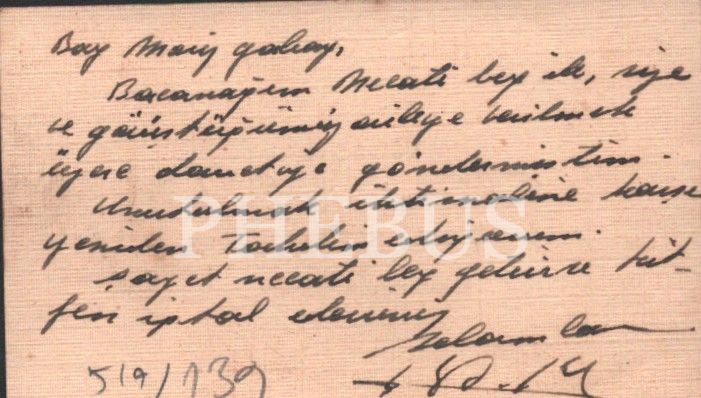 Bay Moiz Gabay,
Bacanağım Necati bey ile, size
ve görüştüğümüz aileye verilmek
üzere davetiye göndermiştim.
Unutulmak ihtimaline karşı
yeniden takdim ediyorum.
Şayet Necati bey getirirse lüt-
fen iptal ediniz
Selamlar
5/9/939
PHEBUS